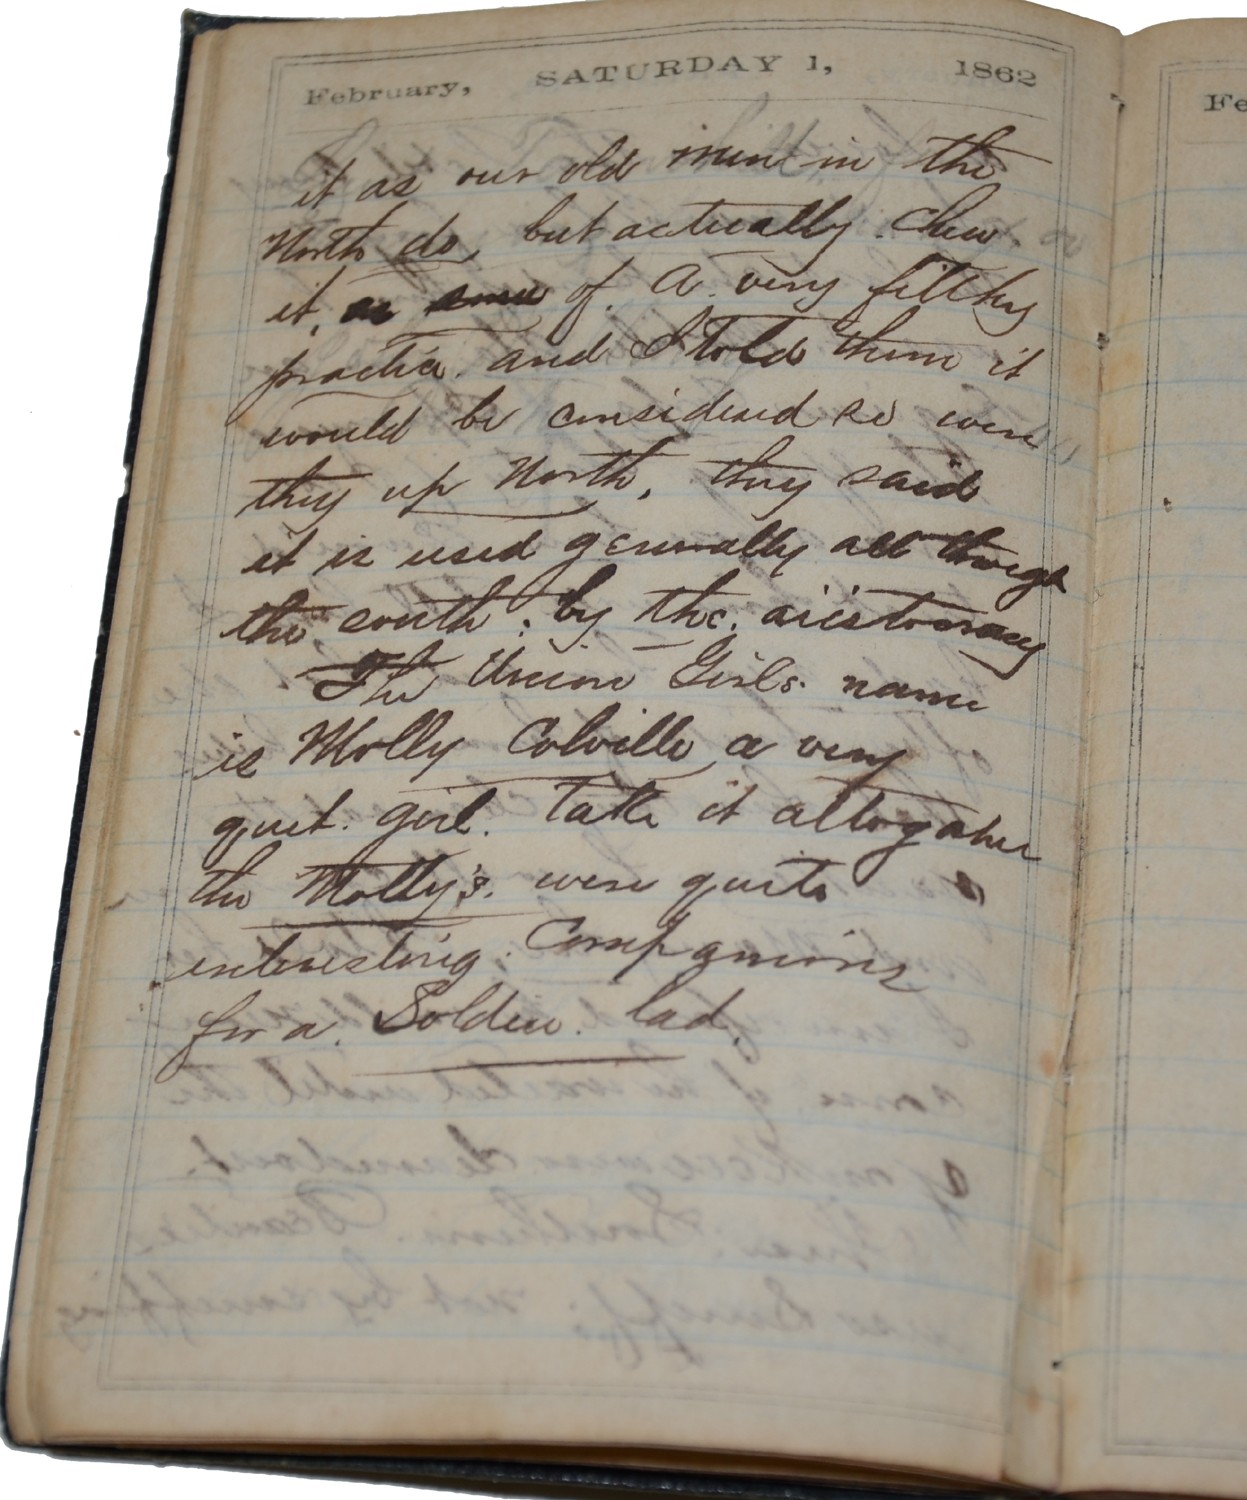 February, SATURDAY 1, 1862
it as our old men in the
North do, but actually chew
it, of a very filthy
practice and I told them it
would be considered so were
they up North, they said
it is used generally all though
the south; by the. airistocracy
The Union Girls name
is Molly Colville, a very
quiet. girl. Take it altogather
the Molly's. were quite
interesting Companions
for a Soldier. lad.
Fe